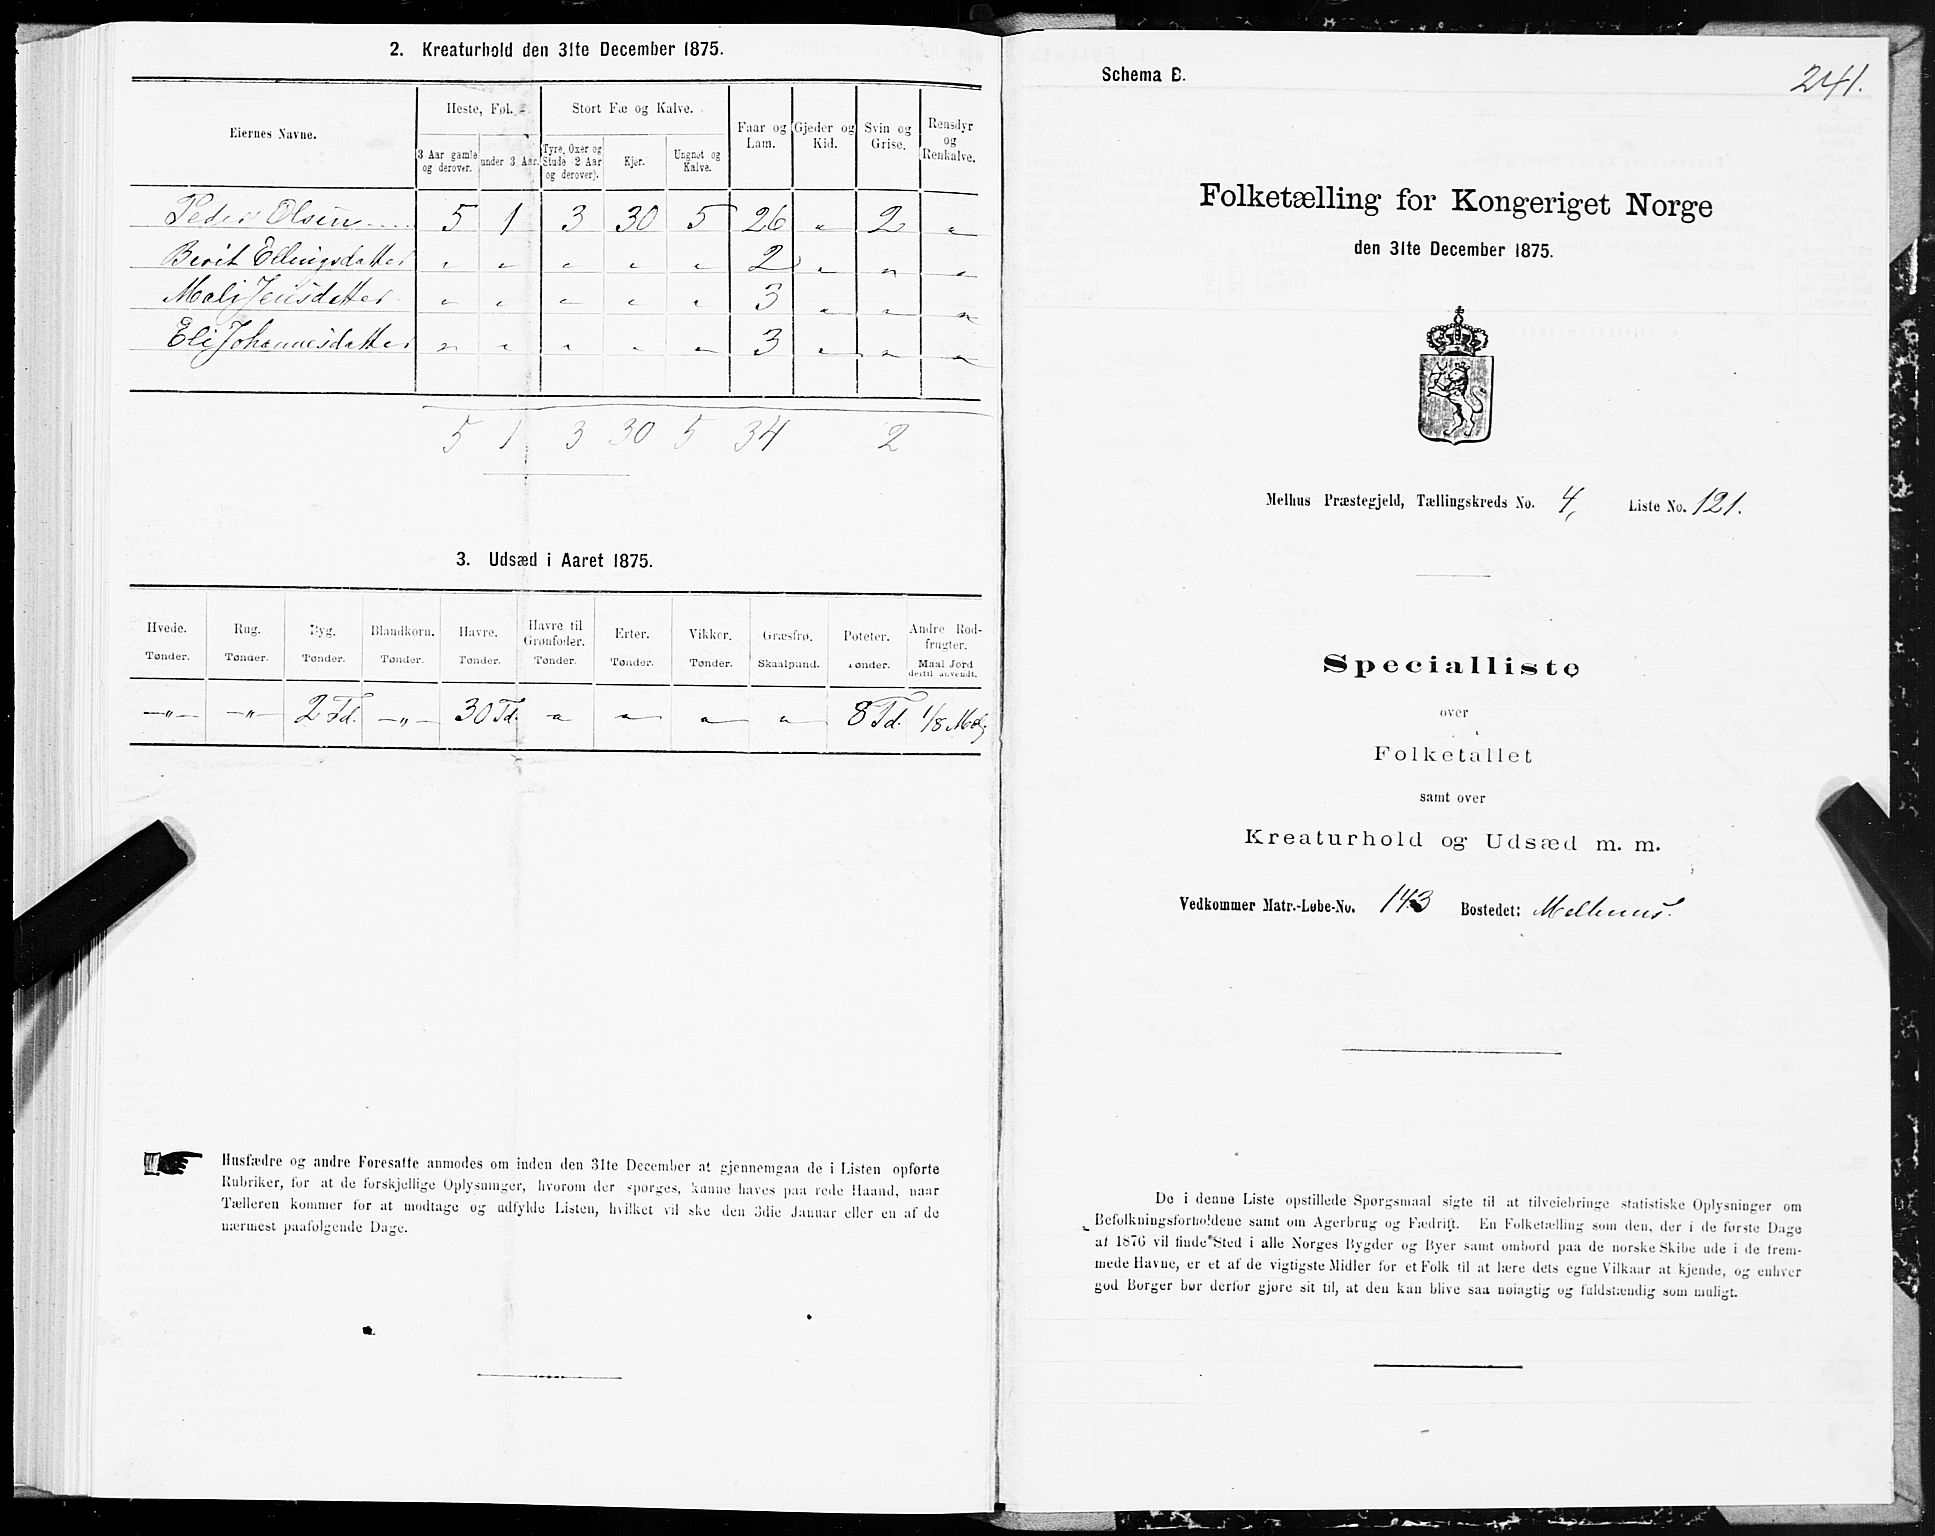 2. Kreaturhold den 31te December 1875.
Eiernes Navne. Heste, Føl. Stort Fæ og Kalve. Faar og Lam. Gjeder og Kid. Svin og Grise. Rensdyr og Renkalve.
3 Aar gamle og derover. under 3 Aar. Tyre, Oxer og Stude (2 Aar og derover). Kjør. Ungnøt og Kalve.
Peder Olsen 5 1 3 30 5 26 " 2 "
Berit Ellingsdatter " " " " " 2 " " "
Mali Jensdatter " " " " " 3 " " "
Eli Johannesdatter " " " " " 3 " " "
5 1 3 30 5 34 2
3. Udsæd i Aaret 1875.
Hvede. Rug. Byg. Blandkorn. Havre. Havre til Grønfoder. Erter. Vikker. Græsfrø. Poteter. Andre Rodfrugter.
Tønder. Tønder. Tønder. Tønder. Tønder. Tønder. Tønder. Tønder. Skaalpund. Tønder. Maal Jord dertil anvendt.
—"— —"— 2 Td. —"— 30 Td. " " " " 8 Td. 1/8 Maal
Husfædre og andre Foresatte anmodes om inden den 31te December at gjennemgaa de i Listen opførte
Rubriker, for at de forskjellige Oplysninger, hvorom der spørges, kunne haves paa rede Haand, naar
Tælleren kommer for at modtage og udfylde Listen, hvilket vil ske den 3die Januar eller en af de
nærmest paafølgende Dage.
Schema B.
241.
Folketælling for Kongeriget Norge
den 31te December 1875.
Melhus Præstegjeld, Tællingskreds No. 4, Liste No. 121.
Specialliste
over
Folketallet
samt over
Kreaturhold og Udsæd m. m.
Vedkommer Matr.-Løbe-No. 143 Bostedet: Melhuus.
De i denne Liste opstillede Spørgsmaal sigte til at tilveiebringe statistiske Oplysninger om
Befolkningsforholdene samt om Agerbrug og Fædrift. En Folketælling som den, der i de første Dage
af 1876 vil finde Sted i alle Norges Bygder og Byer samt ombord paa de norske Skibe ude i de frem-
mede Havne, er et af de vigtigste Midler for et Folk til at lære dets egne Vilkaar at kjende, og enhver
god Borger bør derfor gjøre sit til, at den kan blive saa nøiagtig og fuldstændig som muligt.